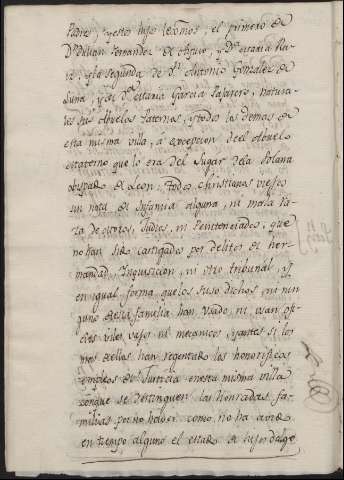 Padre, y estos hijos lexmos, el primero de
Dn. Juan Fernandez de y Da. Maria
y la segunda de Dn. Antonio Gonzalez de
Luna, y de Da. Maria Garcia Pajarero, natura-
les sus Abuelos Paternos, y todos los demas de
esta misma villa, a excepcion del Abuelo
Materno que lo era del Lugar de la Solana
obispado de Leon; todos christianos viejos
sin nota de Infamia alguna, ni mala ra-
za de Moros, Judios, ni Penitenciados, que
no han sido castigados por delitos de her-
mandad, Inquisicion, ni otro tribunal, y
en igual forma, que los suso dichos, ni nin-
guno de esta familia han usado, ni usan ofi-
cios viles, vajos ni mecanicos, y antes si los
mas de ellos han regentado los honorificos
empleos de Justicia en esta misma villa
con que se distinguen las honradas fa-
milias por no haver como no ha avido
en tiempo alguno el estado de hijosdalgo